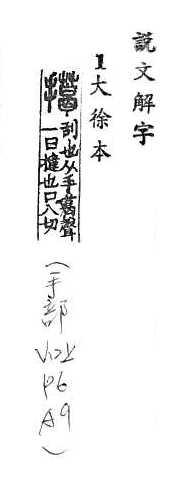 說文解字
1大徐本
擖 刮也从手葛聲
一曰撻也口八切
(手部 V12上 P6 A9)